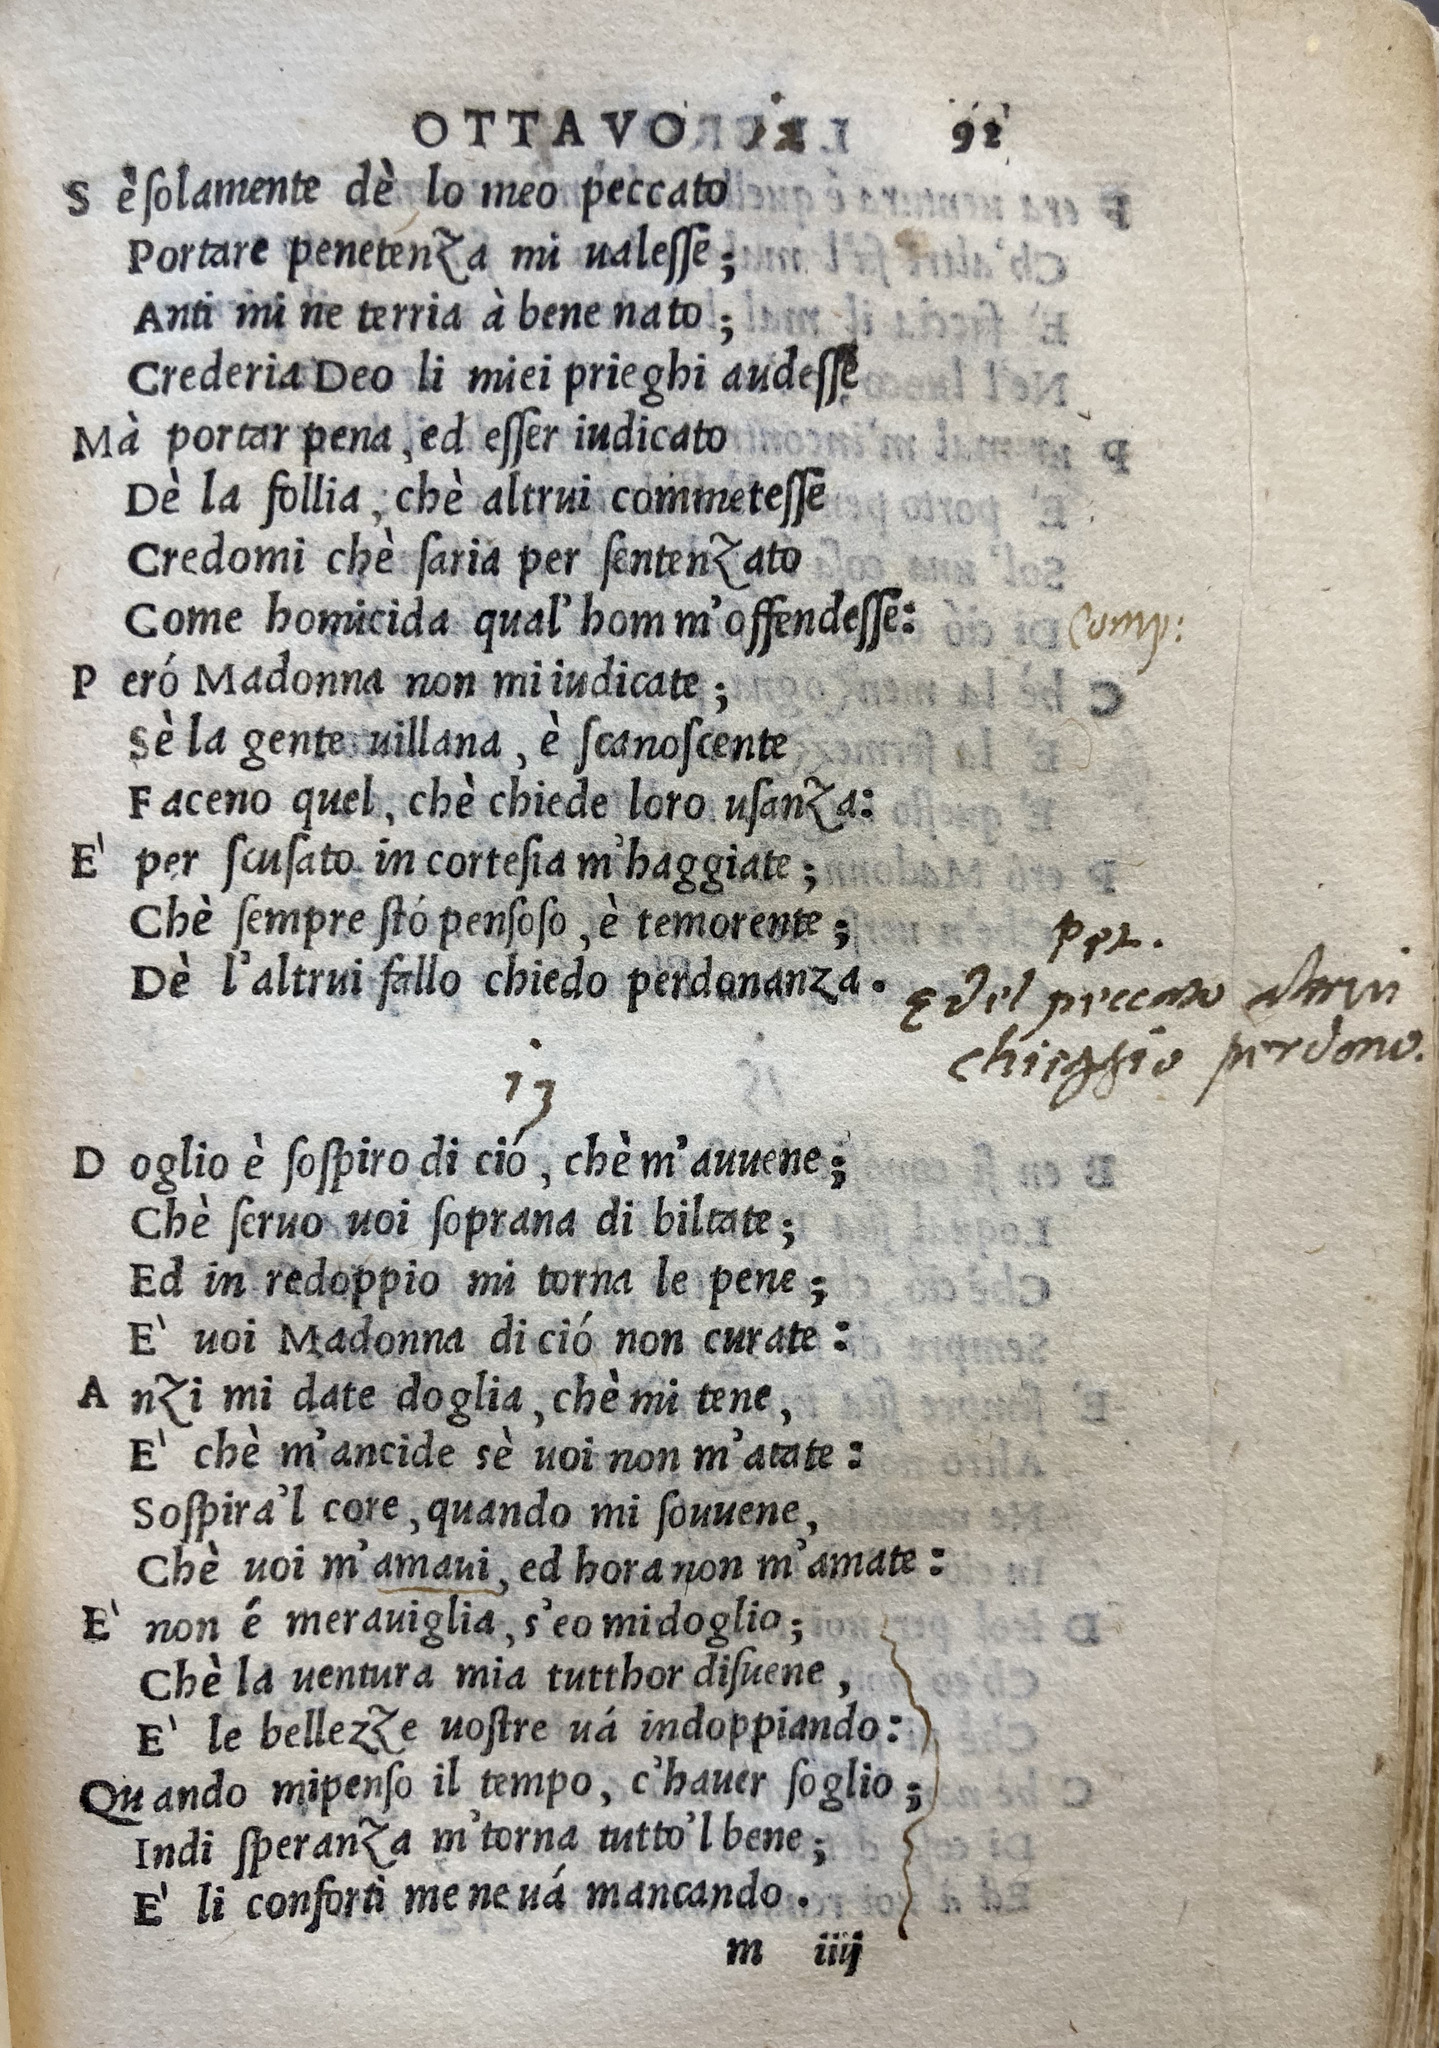 OTTAVO 92
S è solamente dè lo meo peccato
Portare penetenza mi ualesse;
Anti mi ne terria à bene nato;
Crederia Deo li miei prieghi audesse
Mà portar pena, ed esser iudicato
Dè la follia, chè altrui commetesse
Credomi chè saria per sentenzato
Come homicida qual' hom m'offendesse:
Comp:
P eró Madonna non mi iudicate;
Sè la gente uillana, è scanoscente
Faceno quel, chè chiede loro usanza:
E' per scusato in cortesia m'haggiate;
Chè sempre stó pensoso, è temorente;
Dè l'altrui fallo chiedo perdonanza.
del peccato altrui
chieggio perdono.
13
D oglio è sospiro di ció, chè m'auuene;
Chè seruo uoi soprana di biltate;
Ed in redoppio mi torna le pene;
E' uoi Madonna di ció non curate:
A nzi mi date doglia, chè mi tene,
E' chè m'ancide sè uoi non m'atate:
Sospira'l core, quando mi souuene,
Chè uoi m'amaui, ed hora non m'amate:
E' non é merauiglia, s'eo mi doglio;
Chè la uentura mia tutthor disuene,
E' le bellezze uostre uá indoppiando:
Quando mi penso il tempo, c'hauer soglio;
Indi speranza m'torna tutto'l bene;
E' li conforti me ne uá mancando.
m iiij